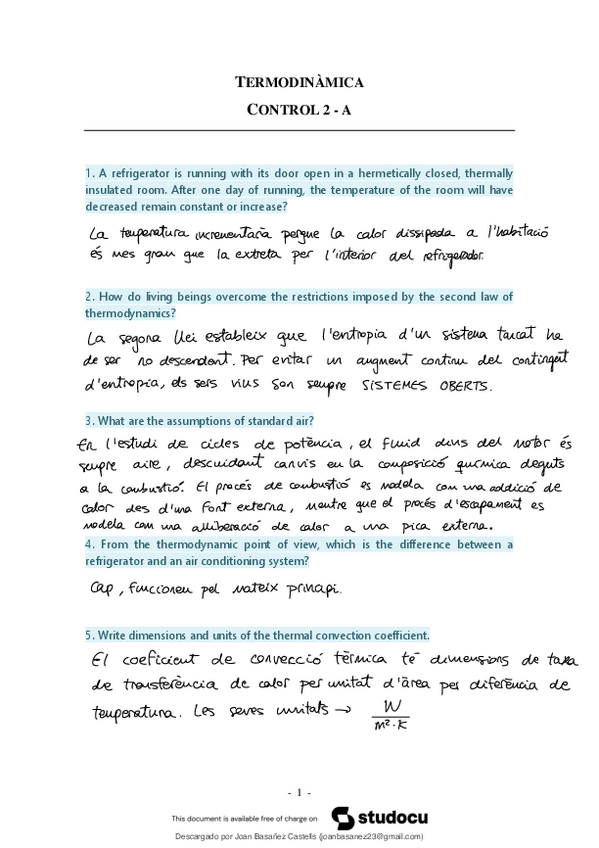 TERMODINÀMICA
CONTROL 2 - A
1. A refrigerator is running with its door open in a hermetically closed, thermally
insulated room. After one day of running, the temperature of the room will have
decreased remain constant or increase?
La temperatura incrementaria perque la calor dissipada a l'habitació
és mes gran que la extreta per l'interior del refrigerador.
2. How do living beings overcome the restrictions imposed by the second law of
thermodynamics?
La segona llei estableix que l'entropia d'un sistema tancat ha
de ser no descendent. Per evitar un augment continu del contingut
d'entropia, els sers vius son sempre SISTEMES OBERTS.
3. What are the assumptions of standard air?
En l'estudi de cicles de potència, el fluid dins del motor és
sempre aire, descuidant canvis en la composició química deguts
a la combustió. El procés de combustió es modela com una addició de
calor des d'una font externa, mentre que el procés d'escapament es
modela com una alliberació de calor a una pica externa.
4. From the thermodynamic point of view, which is the difference between a
refrigerator and an air conditioning system?
Cap, funcionen pel mateix principi.
5. Write dimensions and units of the thermal convection coefficient.
El coeficient de convecció tèrmica té dimensions de taxa
de transferència de calor per unitat d'àrea per diferència de
temperatura. Les seves unitats → W
m²·K
- 1 -
This document is available free of charge on studocu
Descargado por Joan Basañez Castells (joanbasanez23@gmail.com)